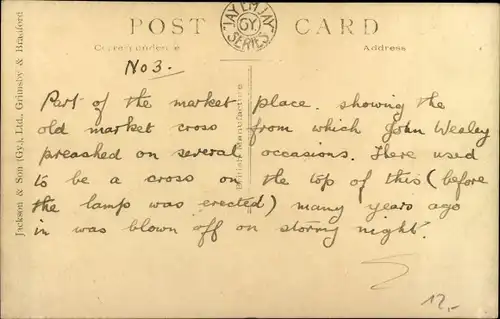 POST CARD
JAY EM JAY
GY.
SERIES
Correspondence
Address
No 3.
Part of the market place. showing the
old market cross from which John Wesley
preached on several occasions. There used
to be a cross on the top of this (before
the lamp was erected) many years ago
in was blown off on stormy night.
12,-
Jackson & Son (Gy.), Ltd., Grimsby & Bradford
British Manufacture